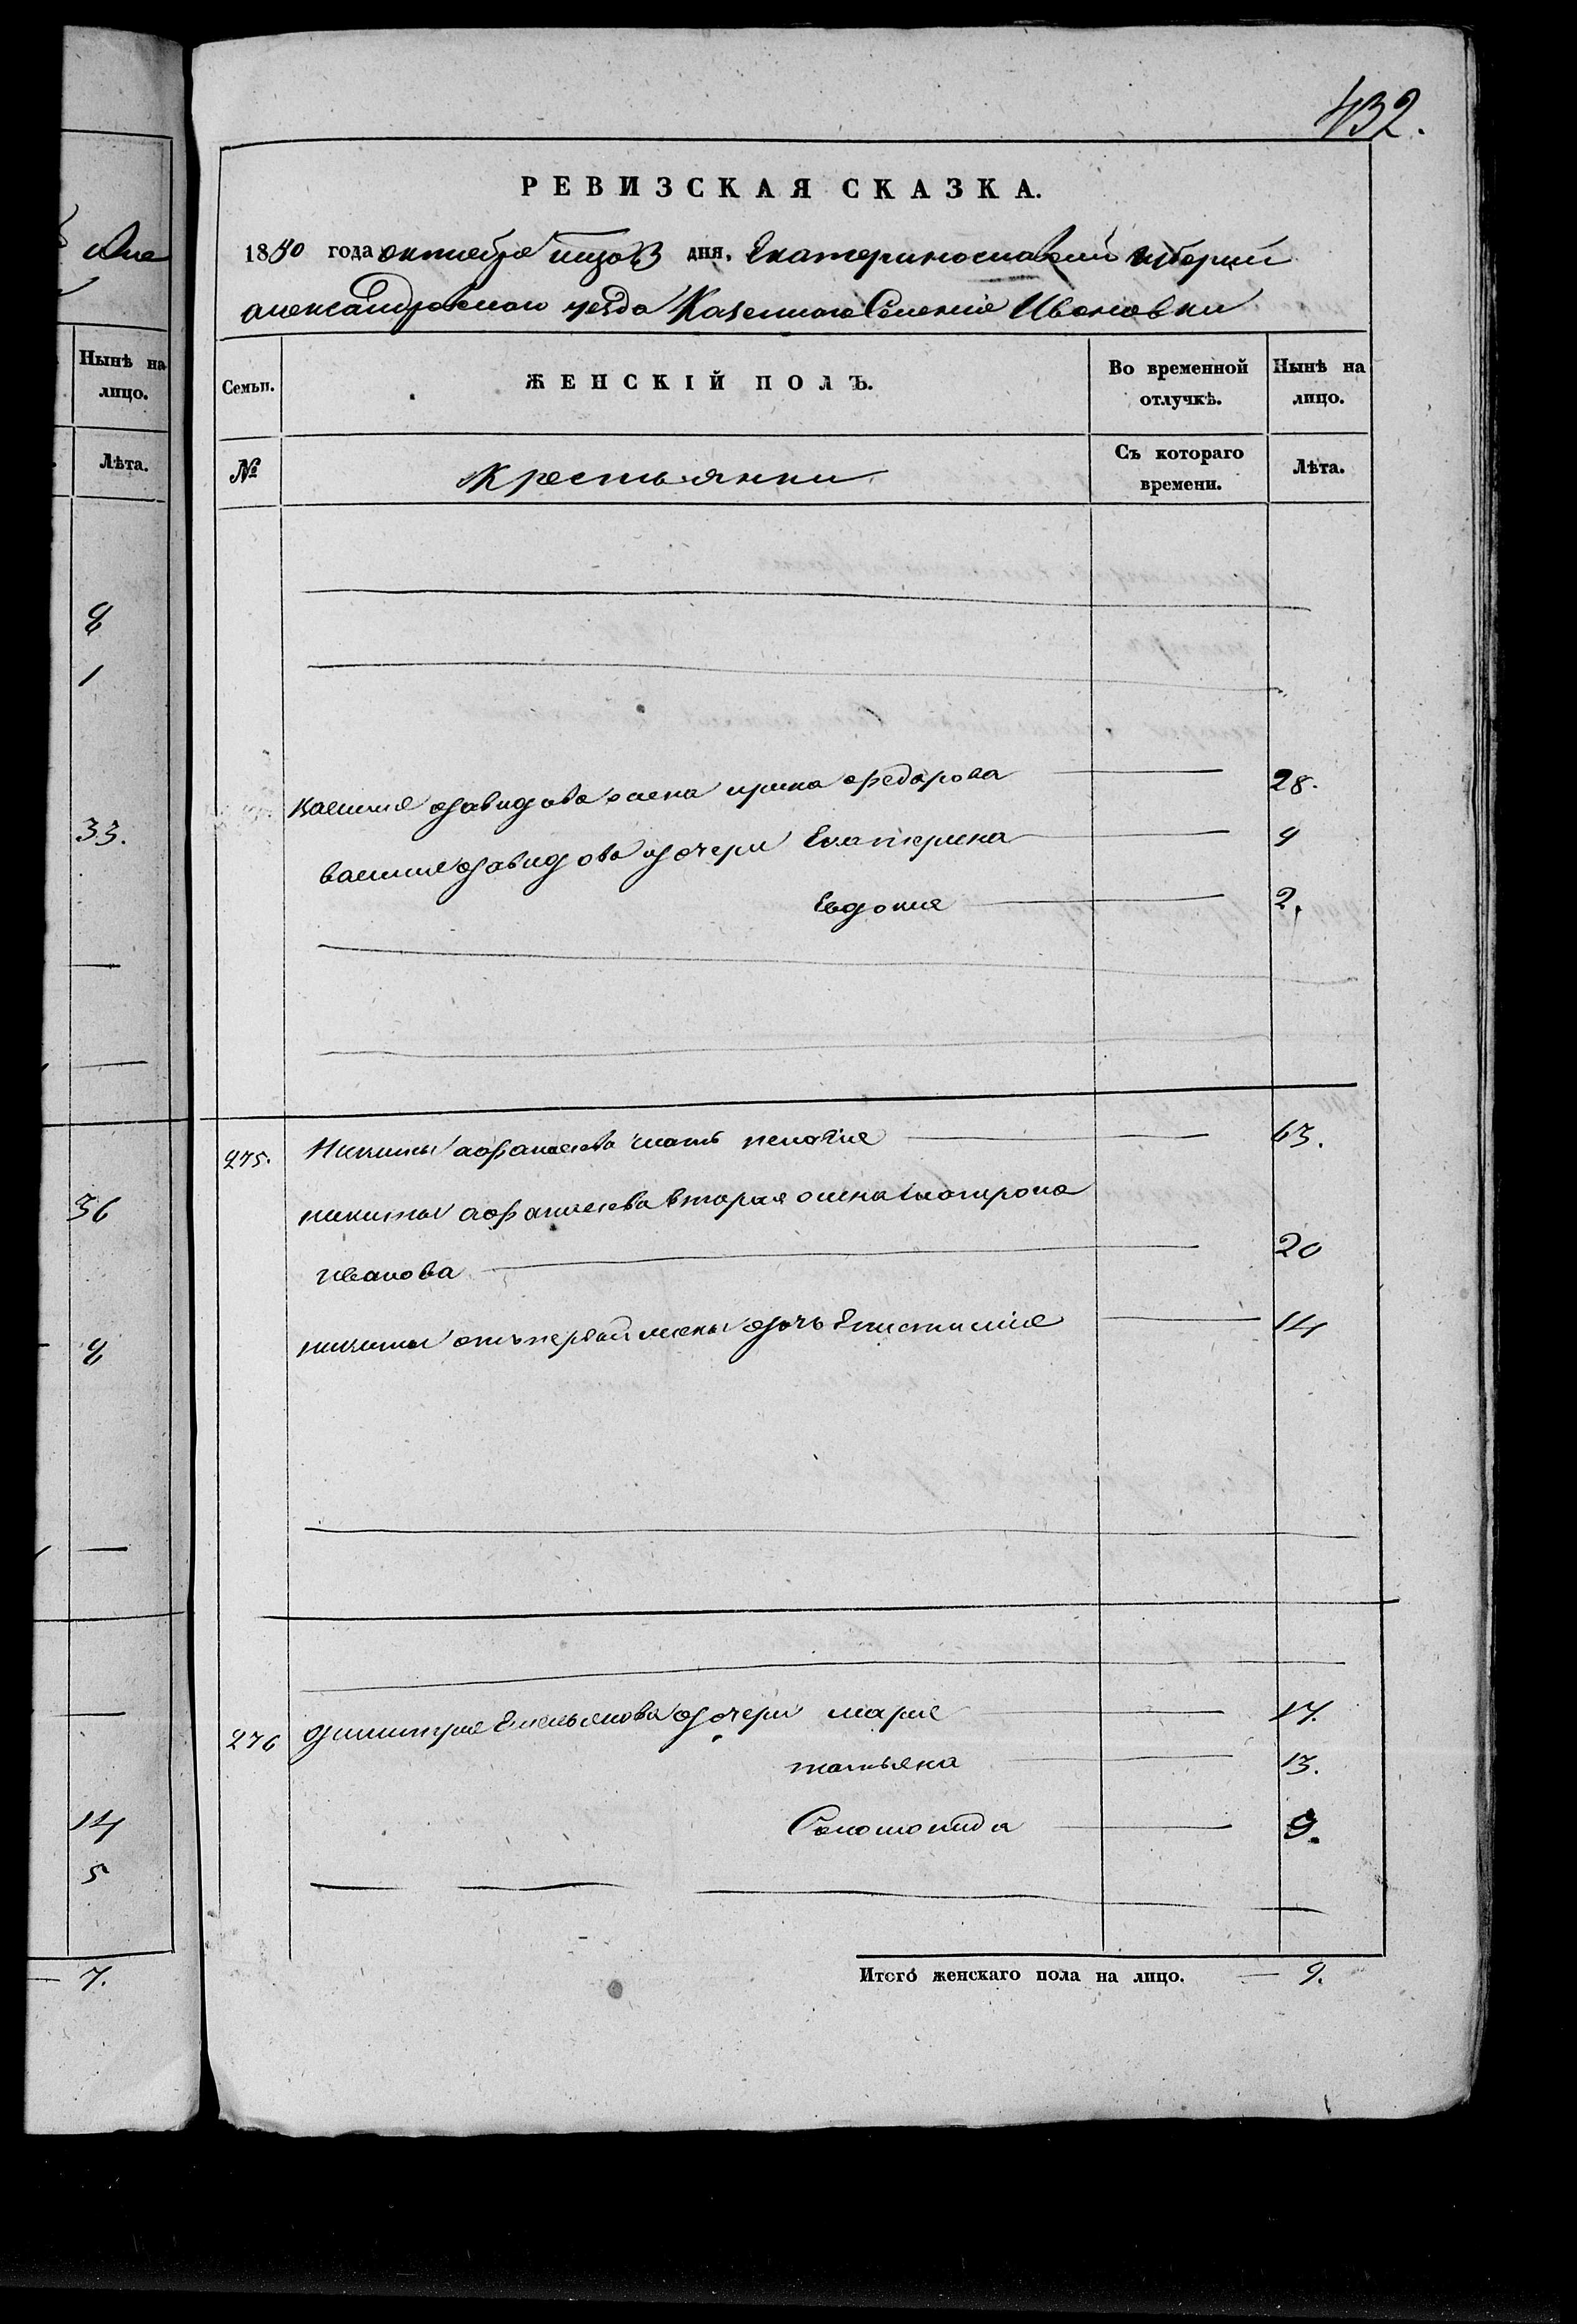 Дня
Нынѣ на
лицо.
Лѣта.
8
1
33.
36
8
14
5
7.
432.
РЕВИЗСКАЯ СКАЗКА.
1850 года октября дня, Екатеринославской губерніи
александровскаго уезда Казеннаго Селенія Ивановки
Семьи.
ЖЕНСКІЙ ПОЛЪ.
Во временной
отлучкѣ.
Нынѣ на
лицо.
№
Крестьянки
Съ котораго
времени.
Лѣта.
Василия давидова жена ирина федорова 28.
василия давидова дочери Екатерина 4
Евдокия 2.
275. Никиты афанасьева мать пелагия 63.
никиты афанасьева вторая жена матрона
иванова 20
никиты отъ первой жены дочь Епистимія 14
276 дмитрия Емельянова дочери мария 17.
татьяна 13.
Соломонида 9.
Итого женскаго пола на лицо. — 9.